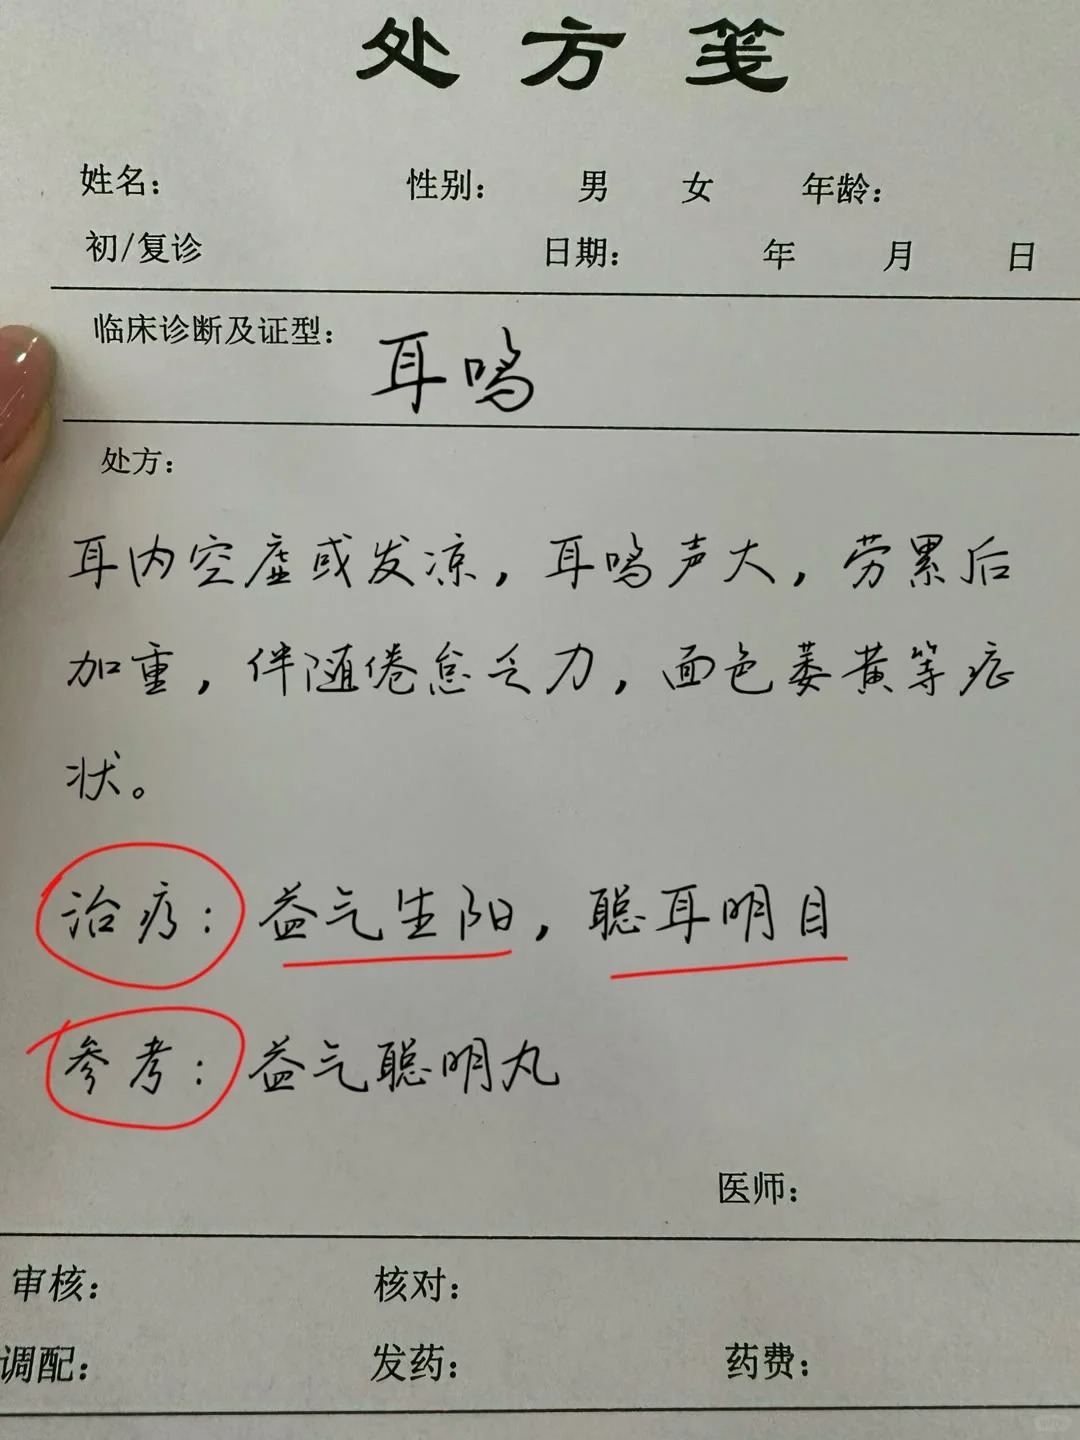 处方笺
姓名： 性别： 男 女 年龄：
初/复诊 日期： 年 月 日
临床诊断及证型： 耳鸣
处方：
耳内空虚或发凉，耳鸣声大，劳累后
加重，伴随倦怠乏力，面色萎黄等症
状。
治疗：益气生阳，聪耳明目
参考：益气聪明丸
医师：
审核： 核对：
调配： 发药： 药费：